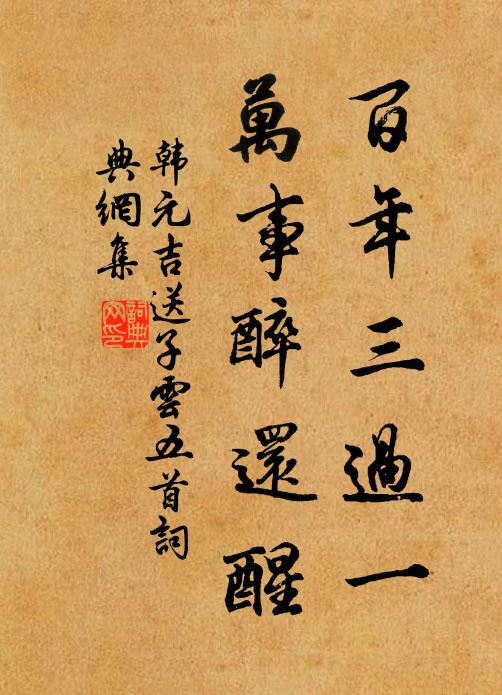 百年三過一
萬事醉還醒
韩元吉送子雲五首詞
典網集
詞典
网印